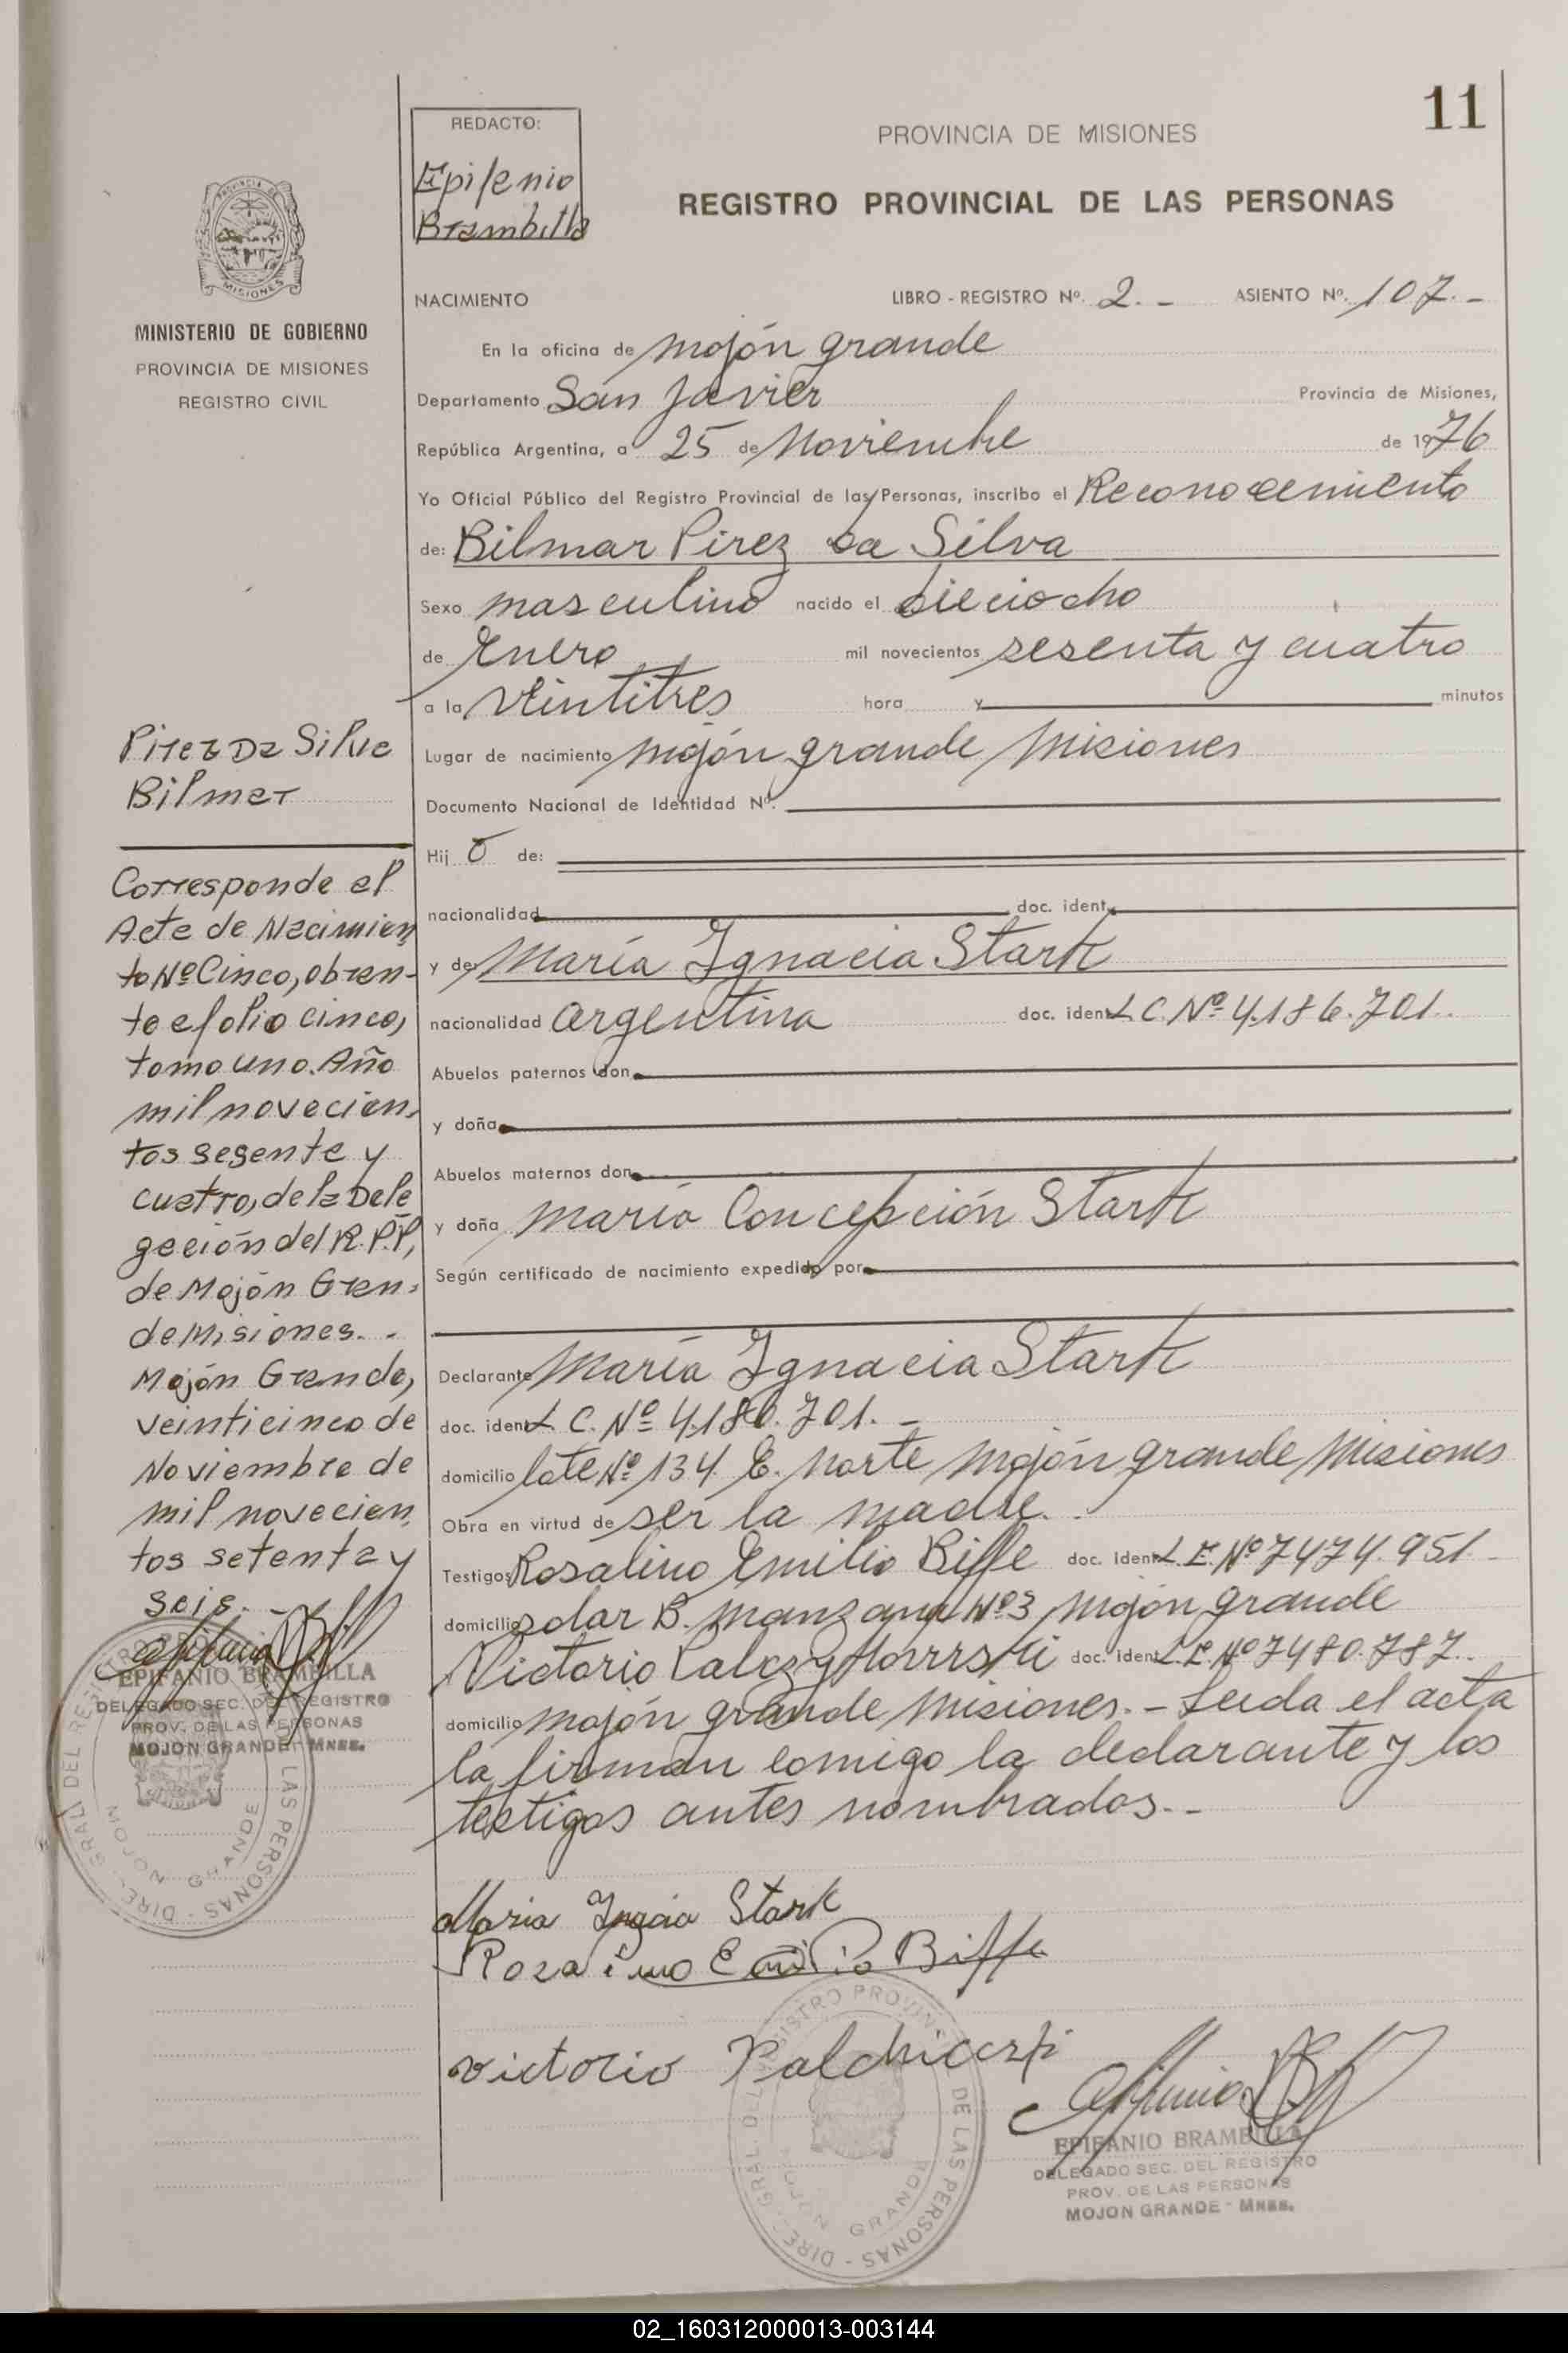 11
REDACTO:
Epifenio
Brambilla
PROVINCIA DE MISIONES
REGISTRO PROVINCIAL DE LAS PERSONAS
MINISTERIO DE GOBIERNO
PROVINCIA DE MISIONES
REGISTRO CIVIL
NACIMIENTO LIBRO - REGISTRO Nº. 2. - ASIENTO Nº. 107. -
En la oficina de Mojón grande
Departamento San Javier Provincia de Misiones,
República Argentina, a 25 de Noviembre de 1976
Yo Oficial Público del Registro Provincial de las Personas, inscribo el Reconocemiento
de: Bilmar Pirez Da Silva
Sexo masculino nacido el Dieciocho
de Enero mil novecientos sesenta y cuatro
a la Veintitres hora y minutos
Lugar de nacimiento Mojón grande Misiones
Documento Nacional de Identidad Nº.
Hij o de:
nacionalidad doc. ident.
y de María Ignacia Stark
nacionalidad argentina doc. ident. L.C. Nº 4.186.701.
Abuelos paternos don
y doña
Abuelos maternos don
y doña María Concepción Stark
Según certificado de nacimiento expedido por
Declarante María Ignacia Stark
doc. ident. L.C. Nº 4.180.701. -
domicilio lote Nº 134 E. Norte Mojón grande Misiones
Obra en virtud de ser la madre. -
Testigos Rosalino Emilio Biffe doc. ident. L.E. Nº 7474.951 -
domicilio solar B. manzana Nº 3 Mojón grande
Victorio doc. ident. L.E. Nº 7480.787.
domicilio Mojón grande Misiones. - Leida el acta
la firman comigo la declarante y los
testigos antes nombrados. -
Pirez Da Silva
Bilmar
Corresponde al
Acta de Nacimien
to Nº Cinco, obran-
te a folio cinco,
tomo uno. Año
mil novecien,
tos sesenta y
cuatro, de la Dele
gación del R.P.P,
de Mojón Gran-
de Misiones. -
Mojón Grande,
veinticinco de
Noviembre de
mil novecien,
tos setenta y
seis. -
EPIFANIO BRAMBILLA
DELEGADO SEC. DEL REGISTRO
PROV. DE LAS PERSONAS
MOJON GRANDE - MNES.
Maria Ingaia Stark
Rozalino Emilio Biffe
Victorio
EPIFANIO BRAMBILLA
DELEGADO SEC. DEL REGISTRO
PROV. DE LAS PERSONAS
MOJON GRANDE - MNES.
02_160312000013-003144